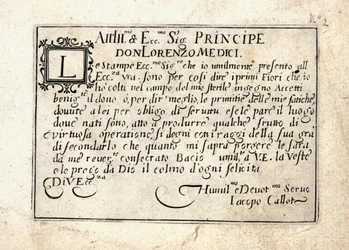 Al Ill.mo & Ecc.mo Sig. PRINCIPE
DON LORENZO MEDICI.
Le Stampe Ecc.mo Sig.re che io umilmente presento all
Ecc.za vra. sono per cosi dire i primi Fiori che io
ho colti nel campo del mio sterile ingegno Accetti
benig.te il dono ò, per dir meglio, le primitie delle mie fatiche,
douute a lei per obligo di seruitu e se le pare il luogo
doue nati sono, atto a produrre qualche frutto di
virtuosa operatione, si degni con i raggi della sua gra.
di secondarlo che quanto mi saprà porgere le sara
da me reuer.te consecrato Bacio umil.te a V.E. la Veste
e le prego da Dio il colmo d'ogni felicita
Di V. Ecc.za
Humil.mo e Deuot.mo Seruo
Iacopo Callot